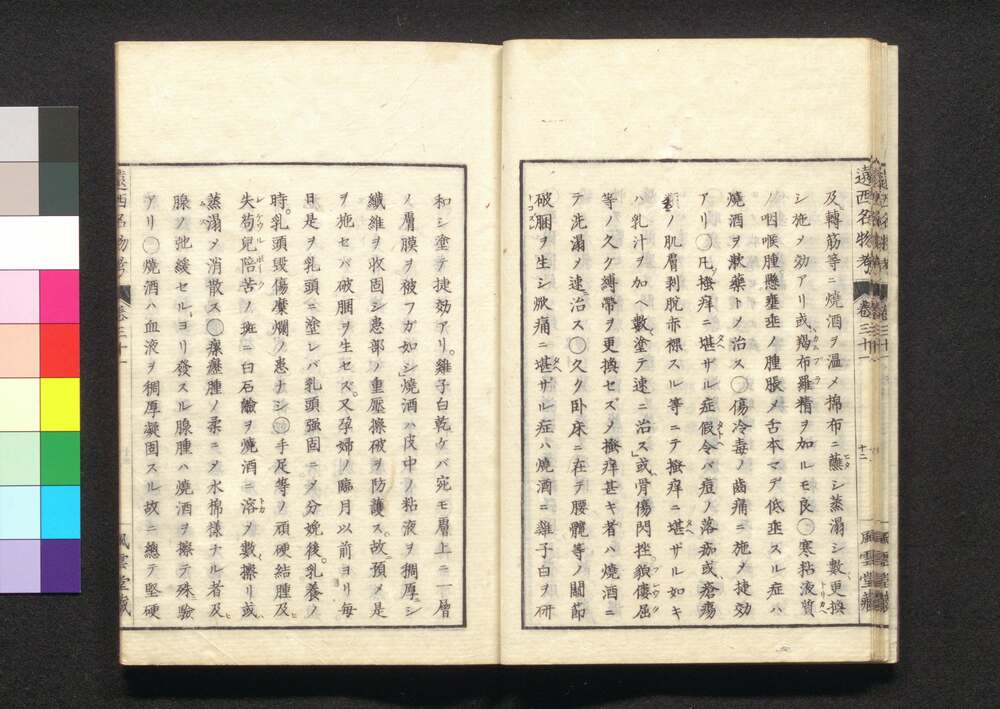 遠西名物考 卷三十一 十二 風雲堂藏
及轉筋等ニ燒酒ヲ溫メ棉布ニ蘸シ蒸溻シ數更換
シ施メ効アリ或羯布羅精ヲ加ルモ良〇寒粘液質
ノ咽喉腫懸壅垂ノ腫脹メ舌本マデ低垂スル症ハ
燒酒ヲ漱藥トメ治ス〇傷冷毒ノ齒痛ニ施メ捷効
アリ〇凡搔痒ニ堪ザル症假令バ痘ノ落痂或瘡瘍
類ノ肌膚剥脫赤裸スル等ニテ搔痒ニ堪ザル如キ
ハ乳汁ヲ加ヘ數塗テ速ニ治ス或骨傷閃挫貌僂屈
等ノ久ク縛帶ヲ更換セズメ搔痒甚キ者ハ燒酒ニ
テ洗溻メ速治ス〇久ク臥床ニ在テ腰髖等ノ關節
破䐃ヲ生シ焮痛ニ堪ザル症ハ燒酒ニ雞子白ヲ研
和シ塗テ捷効アリ雞子白乾ケバ宛モ層上ニ一層
ノ膚膜ヲ被フガ如シ燒酒ハ皮中ノ粘液ヲ稠厚シ
纖維ヲ收固シ患部ノ重壓擦破ヲ防護ス故預メ是
ヲ施セバ破䐃ヲ生セズ又孕婦ノ臨月以前ヨリ每
日是ヲ乳頭ニ塗レバ乳頭强固ニメ分娩後乳養ノ
時乳頭毀傷糜爛ノ患ナシ〇手足等ノ頑硬結腫及
失苟兒陪苦ノ斑ニ白石鹼ヲ燒酒ニ溶ヲ數擦リ或
蒸溻メ消散ス〇瘰癧腫ノ柔ニメ水棉樣ナル者及
腺ノ弛緩セルヨリ發スル腺腫ハ燒酒ヲ擦テ殊驗
アリ〇燒酒ハ血液ヲ稠厚凝固スル故ニ總テ堅硬
遠西名物考 卷三十一 風雲堂藏